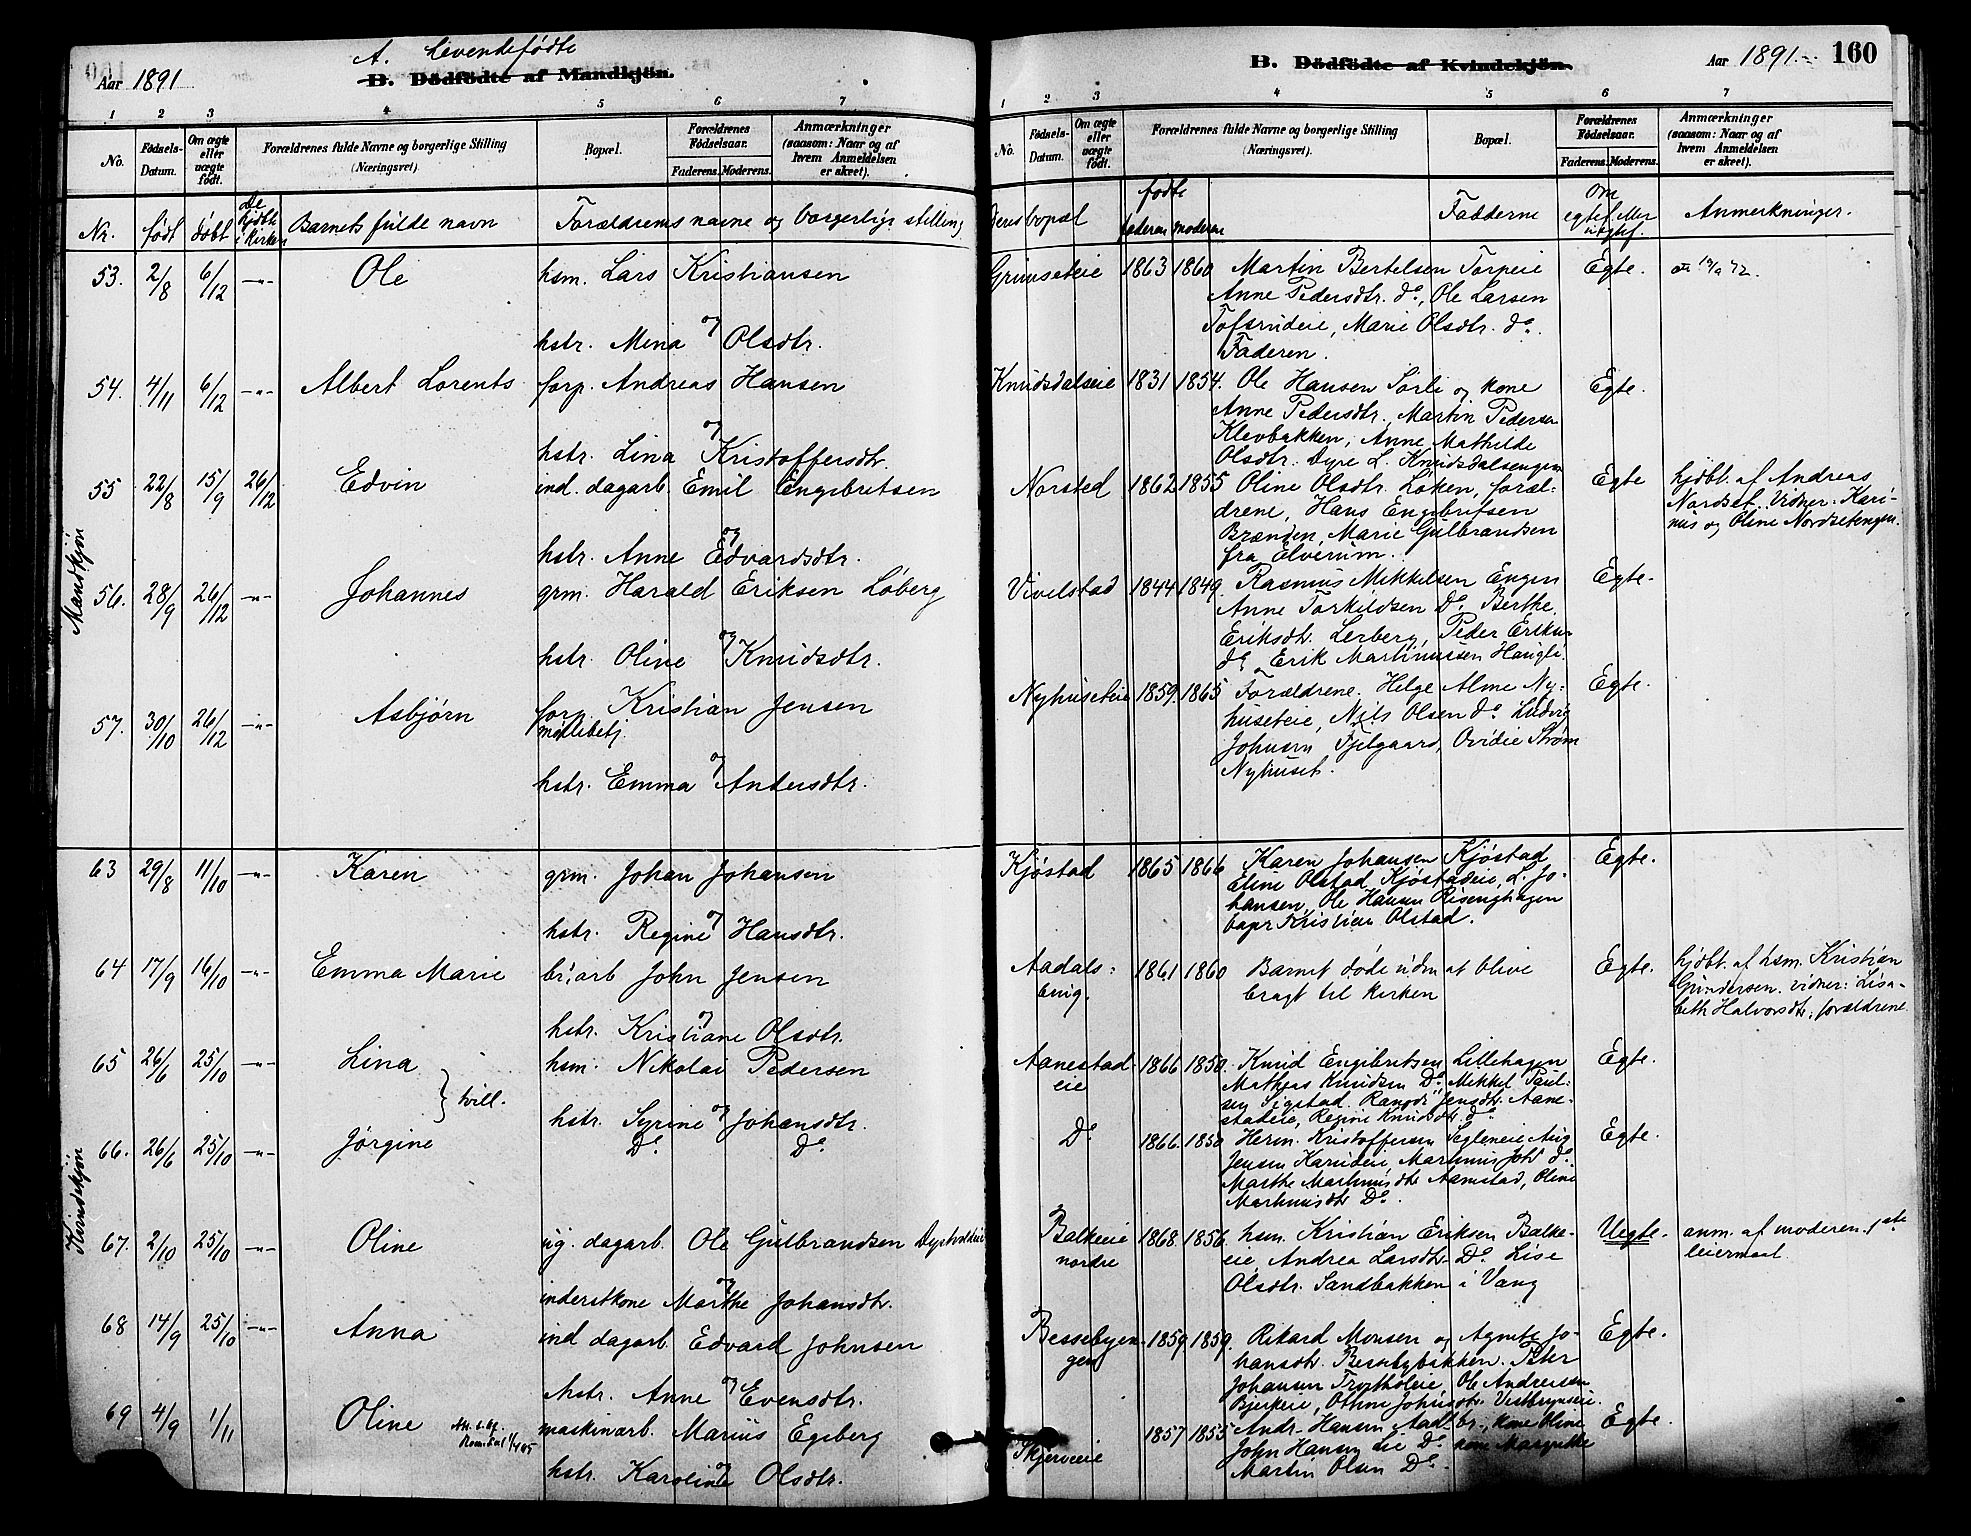 Aar 1891
A. Levendefødte
B. Dödfödte af Mandkjön.
1 2 3 4 5 6 7
No. Födsels-Datum. Om ægte eller uægte födt. Forældrenes fulde Navne og borgerlige Stilling (Næringsvei) Bopæl. Forældrenes Födselsaar. Faderens. Moderens. Anmærkninger (saasom: Naar og af hvem Anmeldelsen er skeet).
Nr. født døbt De hjdbt. i kirken Barnets fulde navn Forældrenes navne og borgerlige stilling
Mandkjøn
53. 2/8 6/12 -"- Ole hsm. Lars Kristiansen
og
hstr. Mina Olsdtr.
54. 4/11 6/12 -"- Albert Lorents forp. Andreas Hansen
og
hstr. Lina Kristoffersdtr.
55 22/8 15/9 26/12 Edvin ind. dagarb. Emil Engebritsen
og
hstr. Anne Edvardsdtr.
56. 28/9 26/12 -"- Johannes grm. Harald Eriksen Løberg
og
hstr. Oline Knudsdtr.
57. 30/10 26/12 -"- Asbjørn forp. Kristian Jensen
møllebetj.
og
hstr. Emma Antersdtr.
Kvindekjøn
63 29/8 11/10 -"- Karen grm. Johan Johansen
og
hstr. Regine Hansdtr.
64 17/9 16/10 -"- Emma Marie br.arb John Jensen
og
hstr. Kristiane Olsdtr.
65 26/6 25/10 -"- Lina hsm. Nikolai Pedersen
} tvill.
hstr. Syrine og Johansdtr.
66. 26/6 25/10 -"- Jørgine Do Do
67. 2/10 25/10 -"- Oline ug. dagarb. Ole Gulbrandsen
og
inderstkone Marthe Johansdtr.
68 14/9 25/10 -"- Anna ind dagarb. Edvard Johnsen
og
hstr. Anne Evensdtr.
69 4/9 1/11 Oline maskinarb. Marius Egeberg
og
hstr. Karoline Olsdtr.
B. Dödfödte af Kvindekjön.
Aar 1891 160
1 2 3 4 5 6 7
No. Födsels-Datum. Om ægte eller uægte födt. Forældrenes fulde Navne og borgerlige Stilling (Næringsvei). Bopæl. Forældrenes Födselsaar. Faderens. Moderens. Anmærkninger (saasom: Naar og af hvem Anmeldelsen er skeet).
deres bopæl fødte faderen moderen Fadderne Om egtef. eller uegtef. Anmerkninger.
Grimseteie 1863 1860 Martin Bertelsen Torpeie Egte.
Anne Pedersdtr. do, Ole Larsen
Tofsrudeie, Marie Olsdtr. do.
Faderen.
Knudsdalseie 1831 1854. Ole Hansen Sørli og kone Egte.
Anne Pedersdtr. Martin Pedersen
Klevbakken, Anne Mathilde
Olsdtr. Dyre L. Knudsdalsengen
Norsted 1862 1855 Oline Olsdtr. Løken, foræl- Egte hjdbt. af Andreas
drene, Hans Engebritsen Nordset. Vidner: Kari-
Brænden, Marie Gulbrandsen nus og Oline Nordsetengen.
fra Elverum.
Vivelstad 1844 1849. Rasmus Mikkelsen Engen Egte.
Anne Torkildsen Do. Berthe
Eriksdtr. Lerberg, Peder Eriksen
Do, Erik Martinussen Haugli
Nyhuseteie 1859. 1865 Forældrene. Helge Alme Ny- Egte.
huseteie, Nils Olsen do Ludvig
Johnsen Fjelgaard, Ovidie Strøm
Nyhuset.
Kjøstad 1865 1866 Karen Johansen Kjøstad Egte.
Eline Olstad Kjøstadeie, L. Jo-
hansen, Ole Hansen Risenghagen
Kristian Olstad.
Aadals- 1861 1860 Barnet døde uden at blive Egte. hjdbt. af hsm. Kristian
brug. bragt til kirken Gundersen. vidner: Lisa-
beth Halvorsdtr, forældrene
Aanestad- 1866 1850. Knud Engebritsen Lillehagen Egte.
eie Mathias Knudsen Do, Mikkel Paul-
sen Sigstad. Randi Jensdtr. Aane-
stadeie, Regine Knudsdtr. do
Do 1866. 1850 Herm. Kristoffersen Sagleneie Aug Egte.
Jensen Karudeie, Martinus Joh do
Marthe Martinusdtr Aanestad, Oline
Martinusdtr Do.
Balkeie 1868. 1856. hsm. Kristian Eriksen Balke- Uegte. anm. af moderen. 1ste
nordre eie, Andrea Larsdtr. Do. Lise leiermaal.
Olsdtr. Sandbakken i Vang
Bessebyen- 1859. 1859. Rikard Monsen og Agnete Jo- Egte.
gen hansdtr. Bessebybakken. Peter
Johansen Trøtholeie, Ole Andreasen
Bjerkeie,
Skjerveie 1857 1855 Andr. Hansen Aadalsbr., kone Oline Egte.
John Hansen Lie Do. kone Margrethe
Martin Olsen Do.